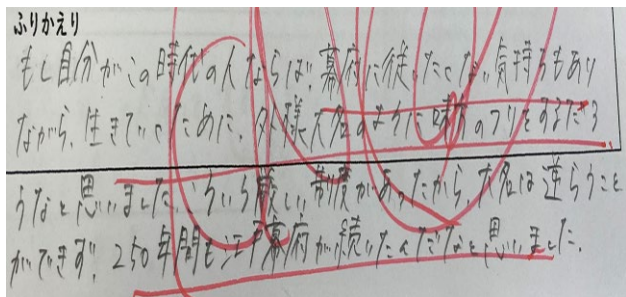 ふりかえり
もし自分がこの時代の人ならば、幕府に従いたくない気持ちもあり
ながら、生きていくために、外様大名のような味方のフリをするだろ
うなと思いました。こういう厳しい制度があったから、大名は逆らうこと
ができず、250年間も江戸幕府が続いたんだなと思いました。